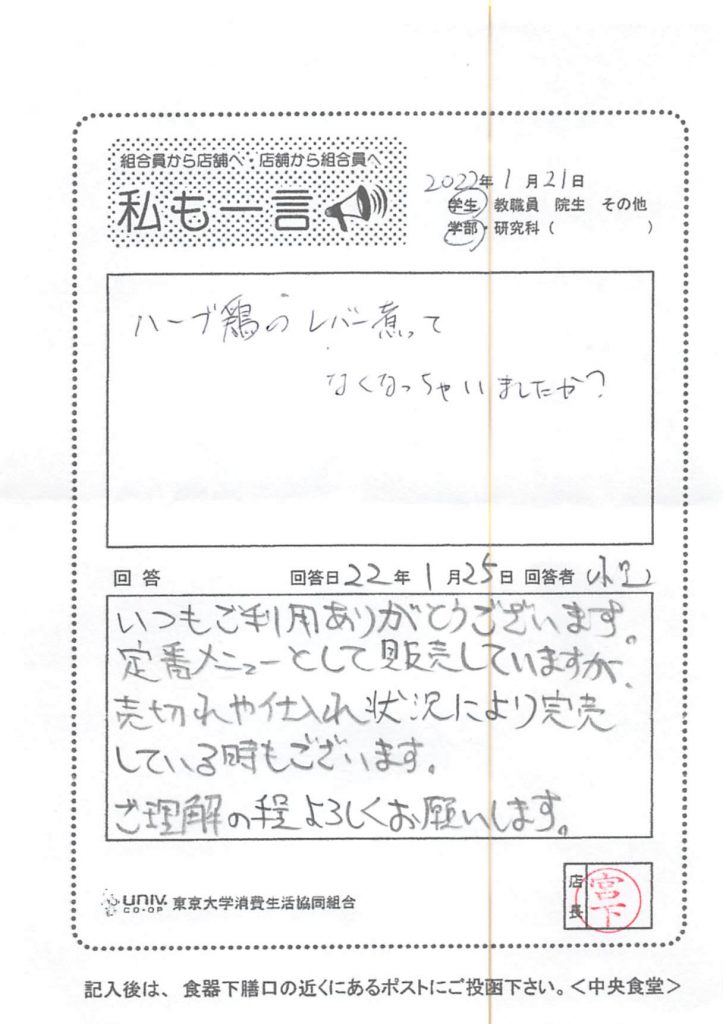 組合員から店舗へ・店舗から組合員へ
私も一言
2022年1月21日
学生 教職員 院生 その他
学部・研究科（　　　）
ハーブ鶏のレバー煮って
なくなっちゃいましたか？
回答 回答日22年1月25日 回答者
いつもご利用ありがとうございます。
定番メニューとして販売していますが、
売切れや仕入れ状況により完売
している時もございます。
ご理解の程よろしくお願いします。
店長
宮下
UNIV.
CO-OP
東京大学消費生活協同組合
記入後は、食器下膳口の近くにあるポストにご投函下さい。＜中央食堂＞